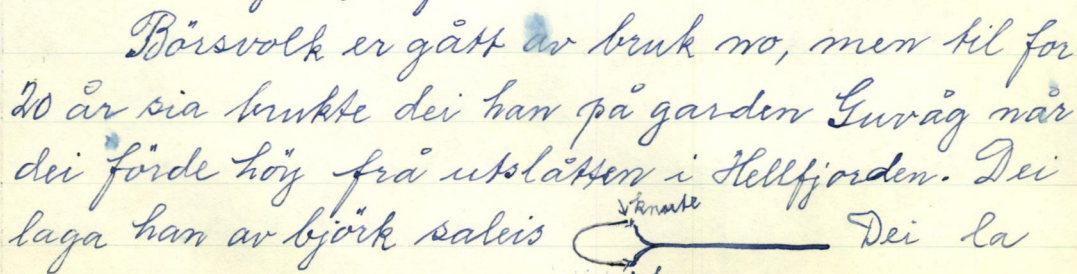 Börsvolk er gått av bruk no, men til for
20 år sia brukte dei han på garden Guvåg når
dei förde höy frå utslåtten i Hellfjorden. Dei
knute
laga han av björk saleis Dei la